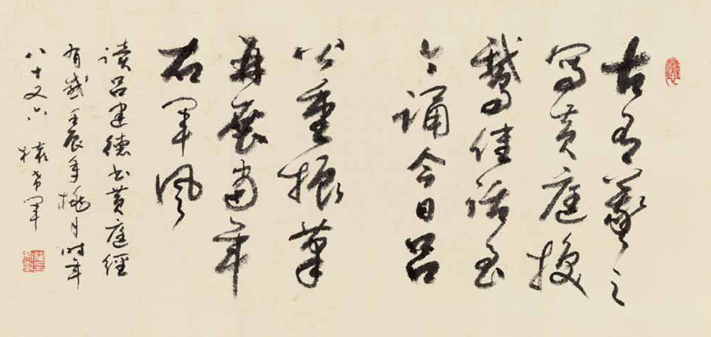 古有羲之
写黄庭换
鹅佳话至
今诵今日吕
公重振笔
再展当年
右军风
读吕建德书黄庭经
有感壬辰年桃月时年
八十又六 军